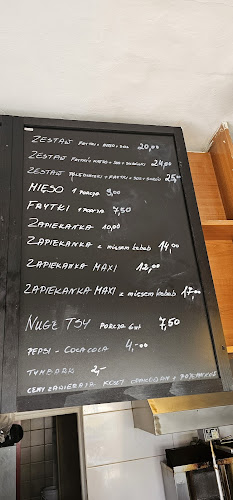 ZESTAW FRYTKI + MIĘSO + SOS 20,00
ZESTAW FRYTKI + MIĘSO + SOS + SURÓWKI 24,00
ZESTAW + FRYTKI + SOS + 25,-
MIĘSO 1 PORCJA 9,00
FRYTKI 1 PORCJA 7,50
ZAPIEKANKA 10,00
ZAPIEKANKA z mięsem kebab 14,00
ZAPIEKANKA MAXI 12,00
ZAPIEKANKA MAXI z mięsem kebab 17,00
NUGETSY PORCJA 6szt 7,50
PEPSI - COCA COLA 4,-00
TYMBARK 2,-
CENY ZAWIERAJĄ KOSZT OPAKOWAŃ